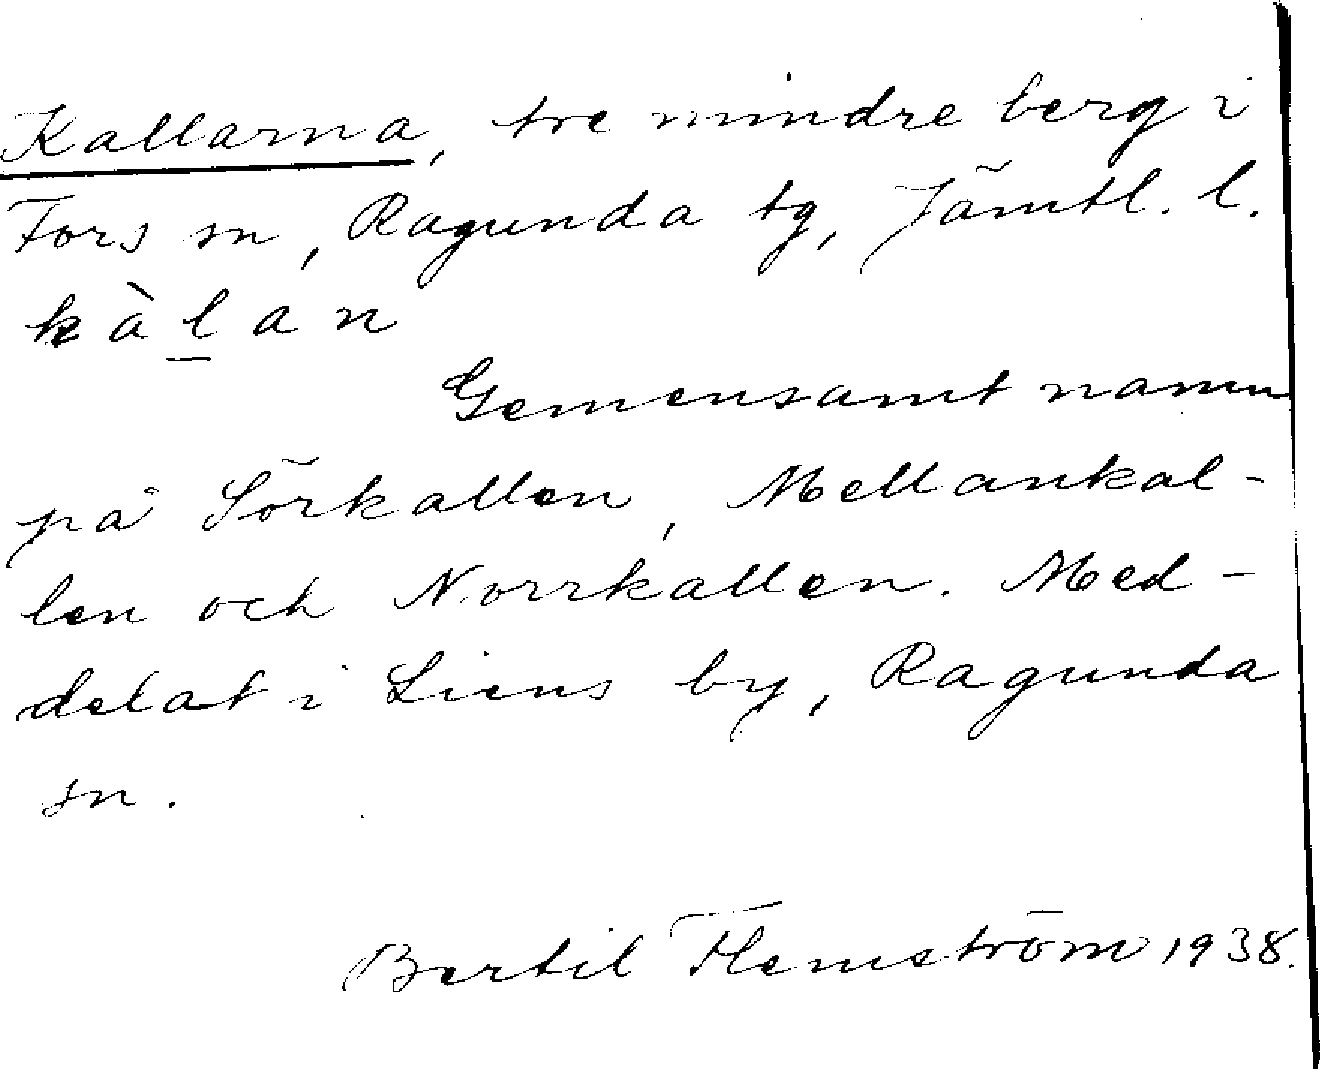 Kallarna, tre mindre berg i
Fors sn, Ragunda tg, Jämtl. l.
kàl̲an
Gemensamt namn
på Sörkallen, Mellankal-
len och Norrkallen. Med-
delat i Liens by, Ragunda
sn.
Bertil Flemström 1938.